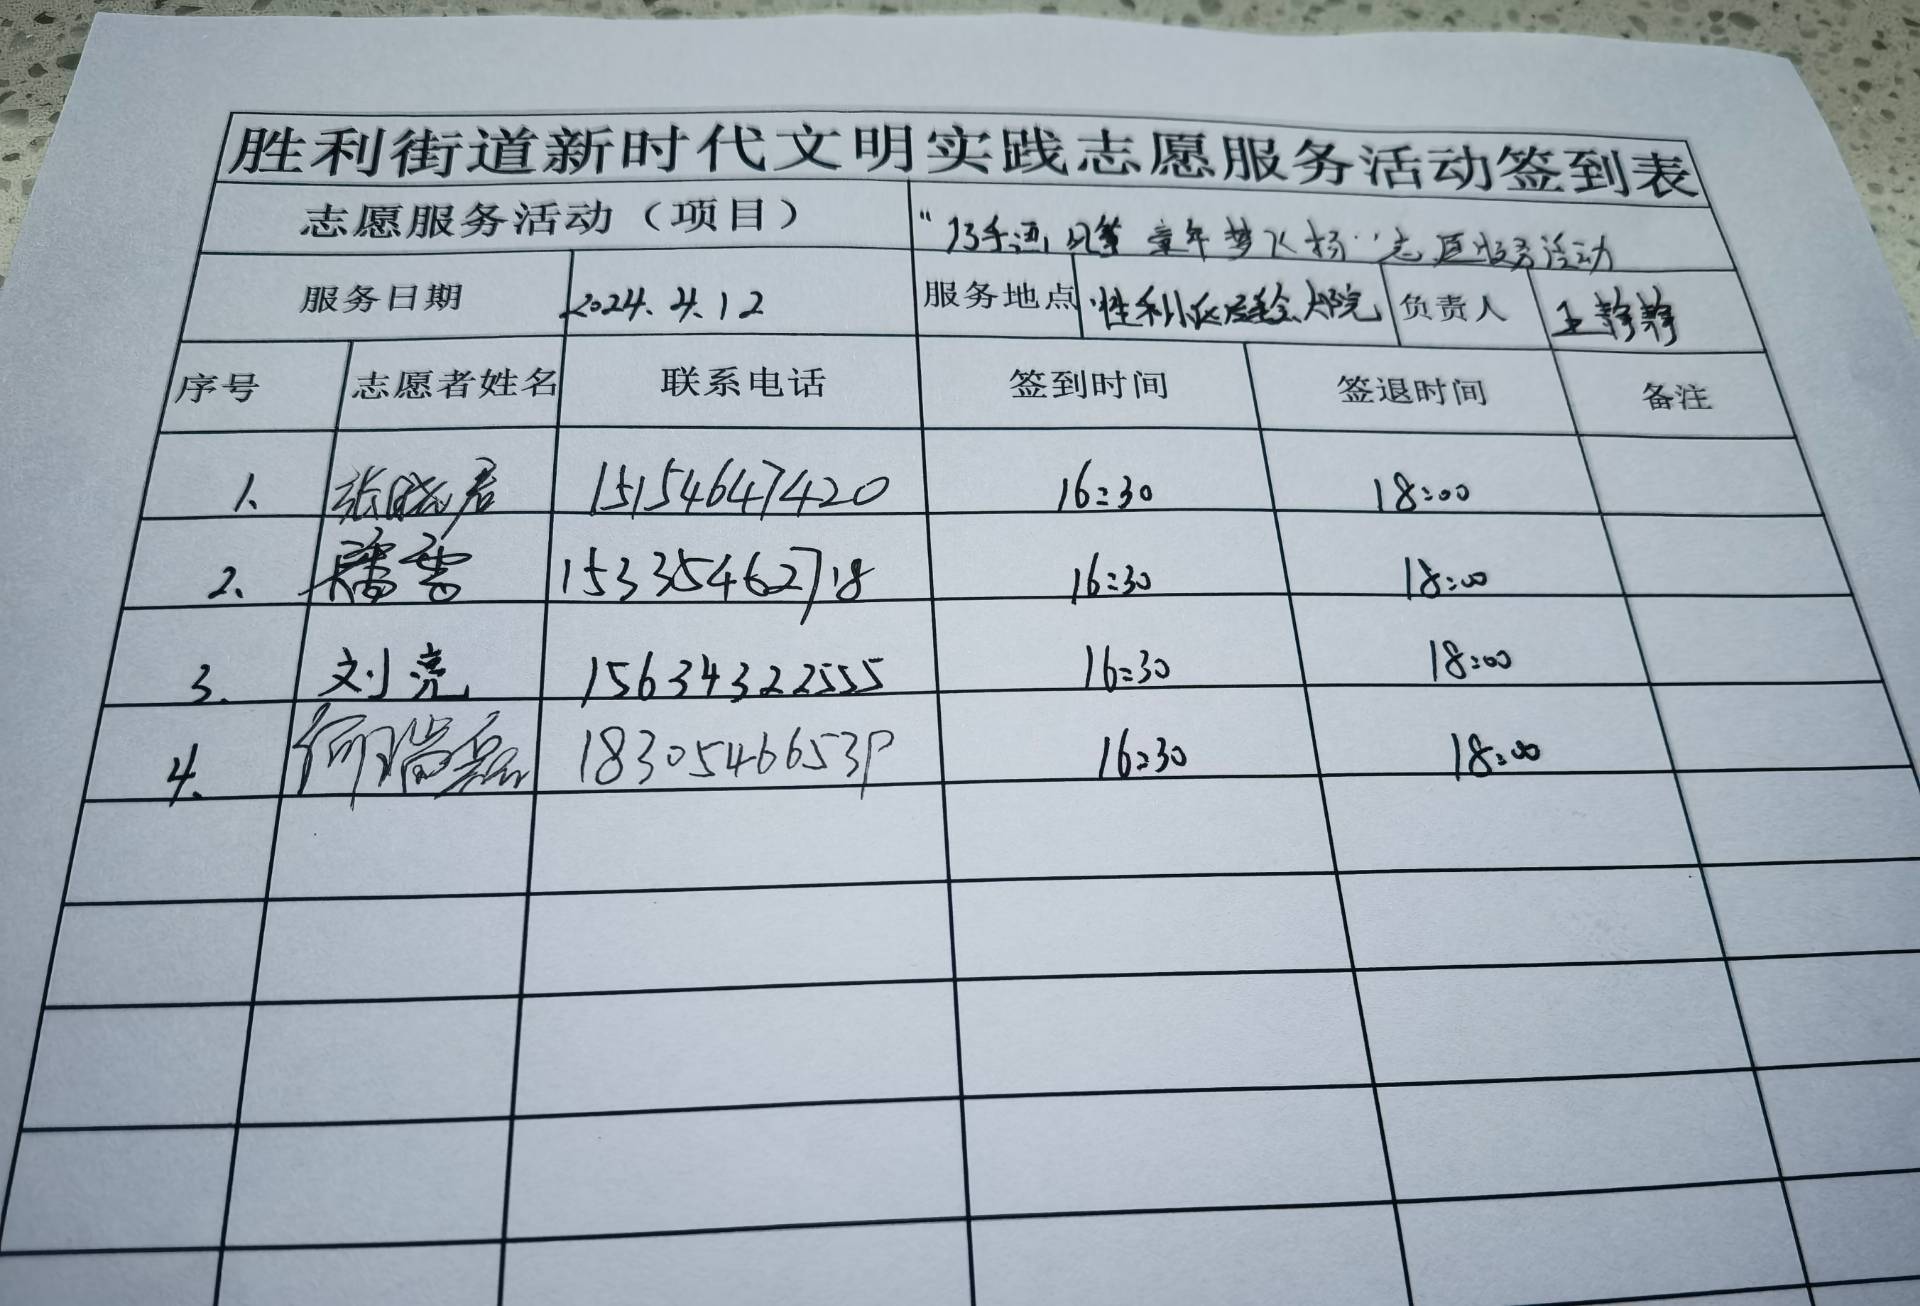 胜利街道新时代文明实践志愿服务活动签到表
志愿服务活动（项目） “巧手画风筝 童年梦飞扬”志愿服务活动
服务日期 2024.4.12 服务地点 胜利小区居委会大院 负责人 王静静
序号 志愿者姓名 联系电话 签到时间 签退时间 备注
1. 张晓君 15154647420 16:30 18:00
2. 15335462718 16:30 18:00
3. 刘亮 15634322555 16:30 18:00
4. 何瑞磊 18305466539 16:30 18:00